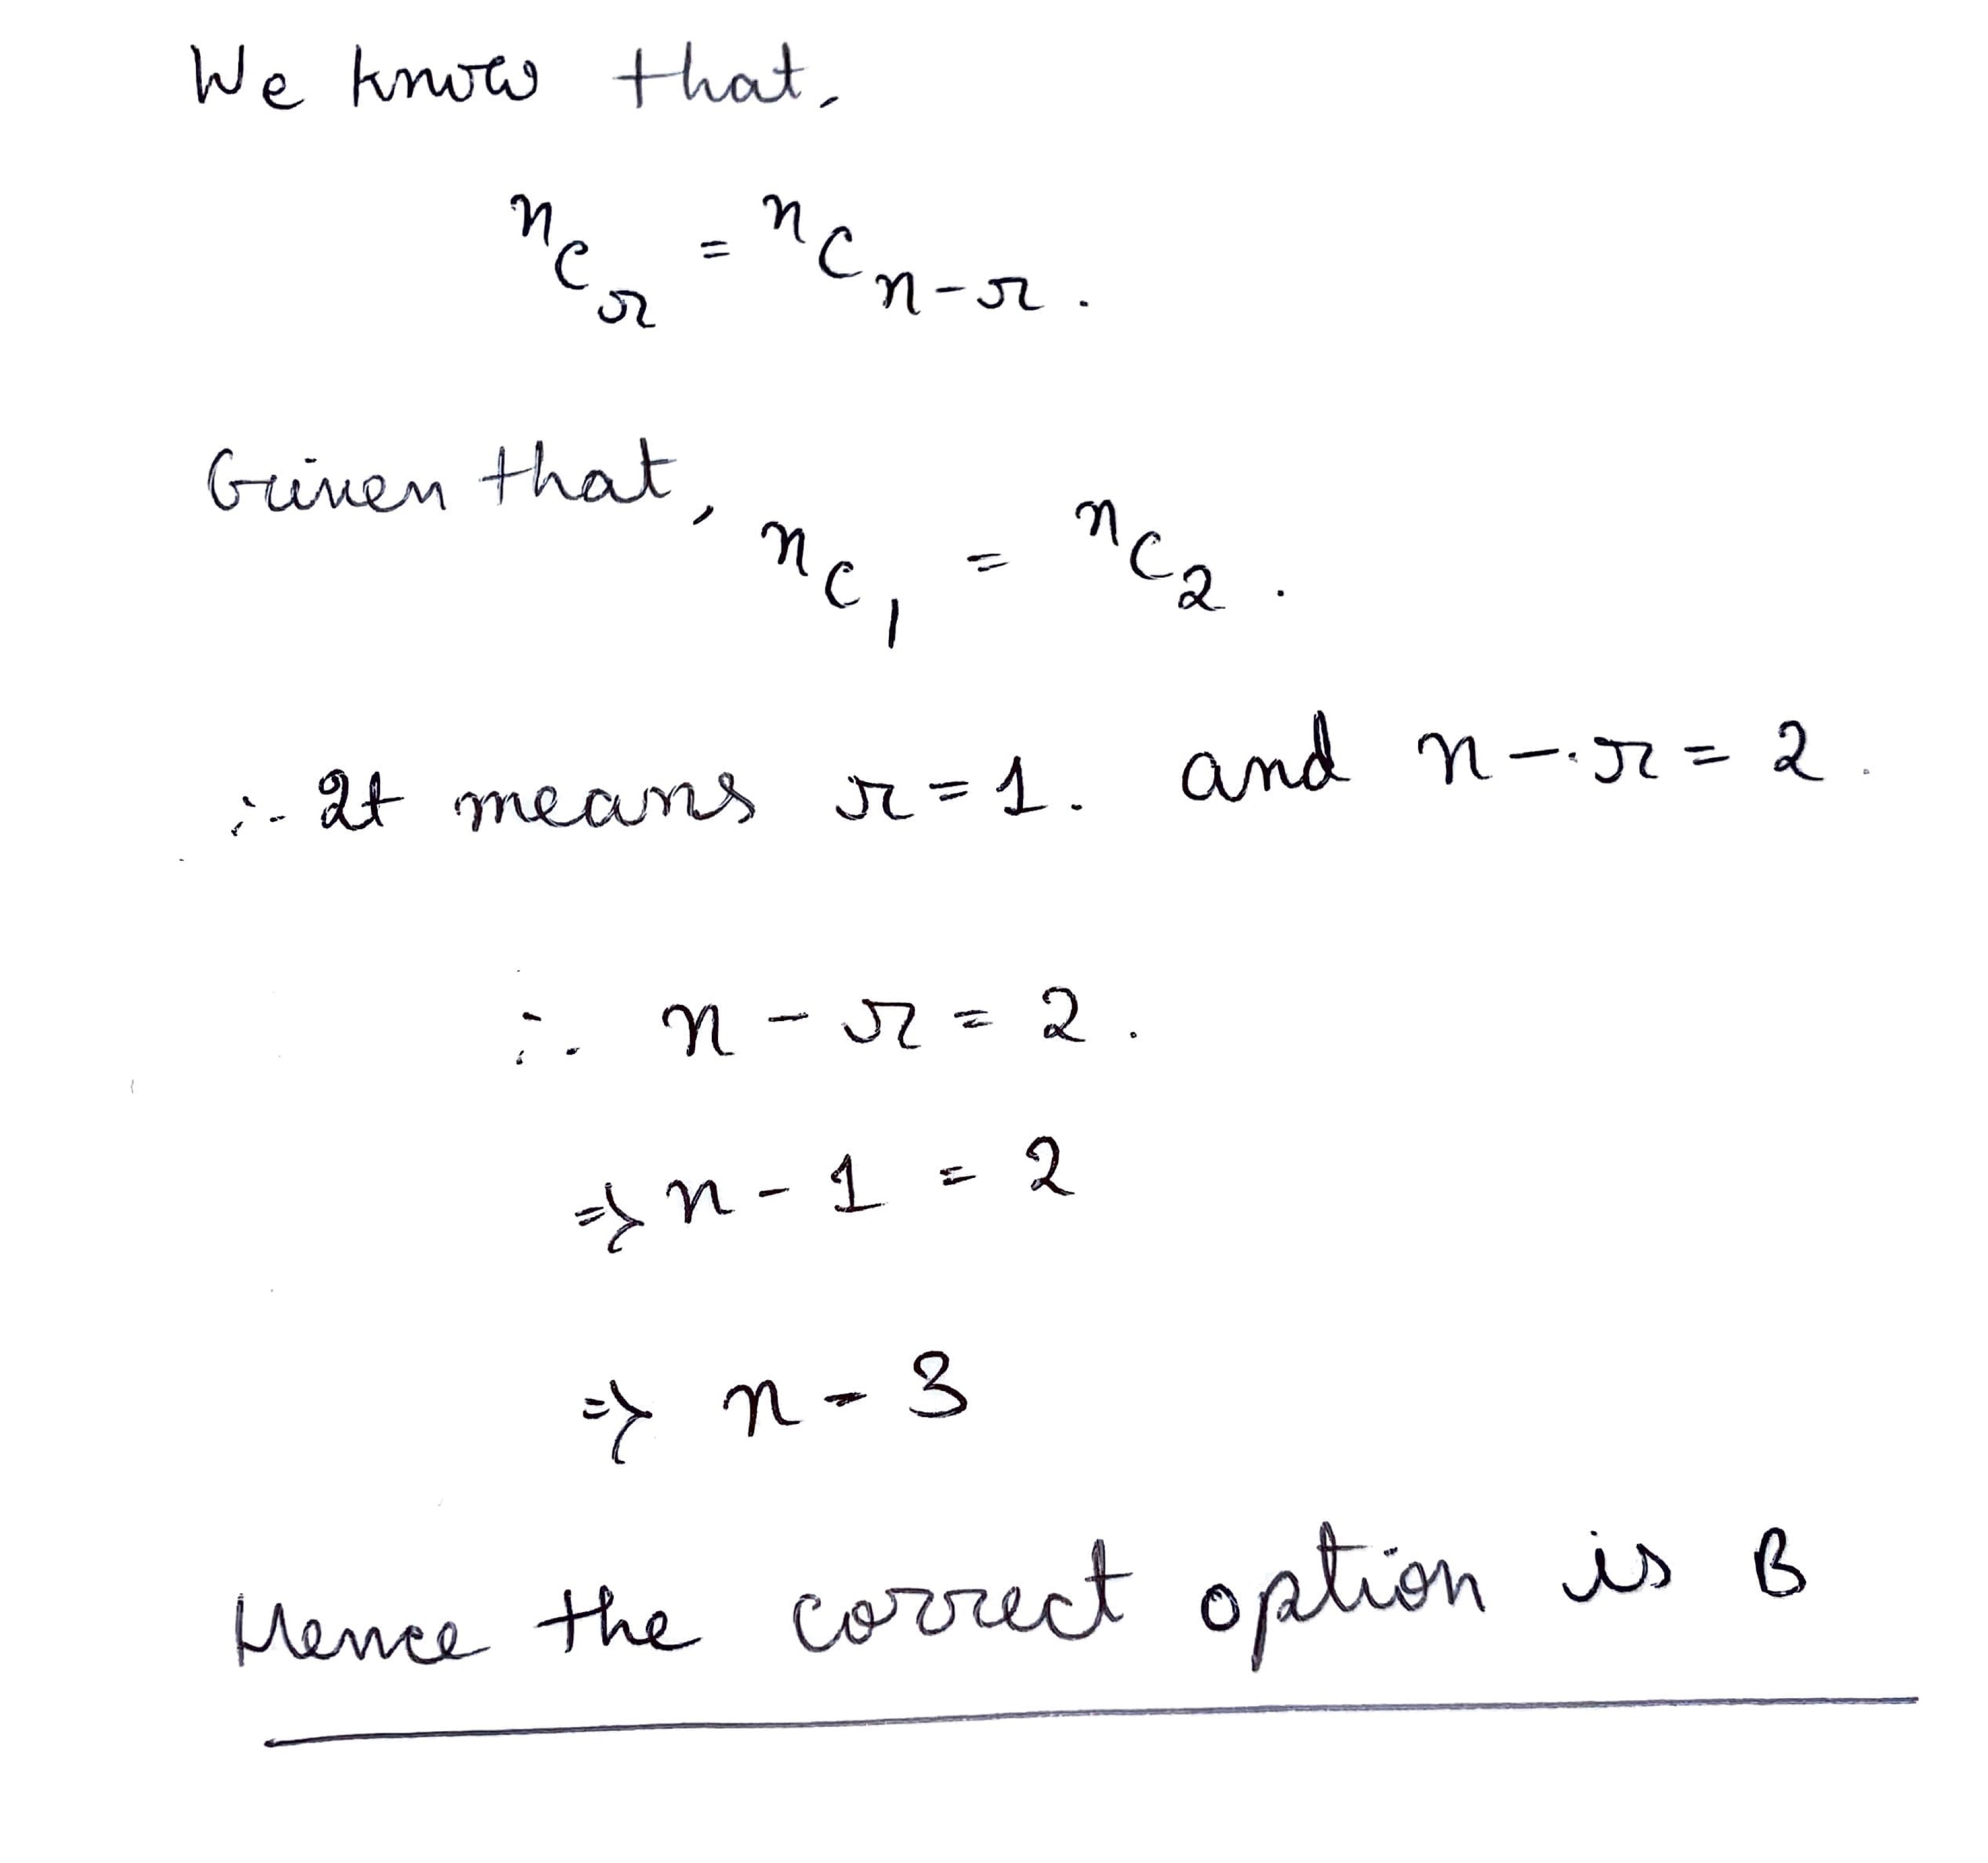 We know that,
ⁿCᵣ = ⁿCₙ₋ᵣ.
Given that,
ⁿC₁ = ⁿC₂.
∴ It means r = 1. and n - r = 2.
∴ n - r = 2.
⇒ n - 1 = 2
⇒ n = 3
Hence the correct option is B